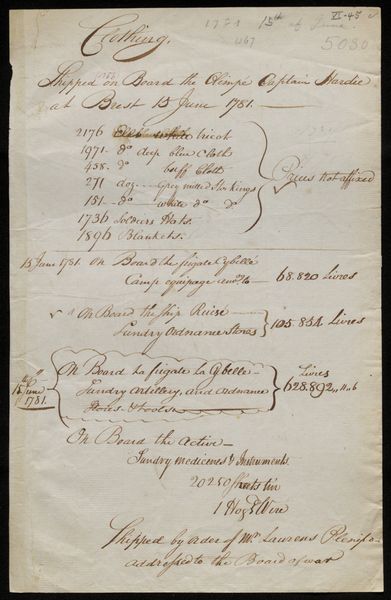 VI-45
1781 15th of June
467
5080
Clothing.
Shipped on Board the Olimpe Captain Hardie
at Brest 15 June 1781.
2176 Ells white tricot
1971 do deep blue Cloth
458 do buff Cloth
271 doz Grey milled Stockings
151 do white do do
1736 Soldiers Hats.
1896 Blankets.
Prices not affixed
15 June 1781. On Board the frigate Cybelle
Camp equipage amotg to 68.820 Livres
" On Board the Ship Ruise
Sundry Ordnance Stores 105.834 Livres
15 June 1781.
On Board La frigate La Cybelle
Sundry Artillery, and ordnance
Stores & tools
Livres
628.892,,11,,6
On Board the Active
Sundry medicines & Instruments
20250 Sheets tin
1 Hogd Wire
Shipped by order of Mr Laurens Plenipo
addressed to the Board of war